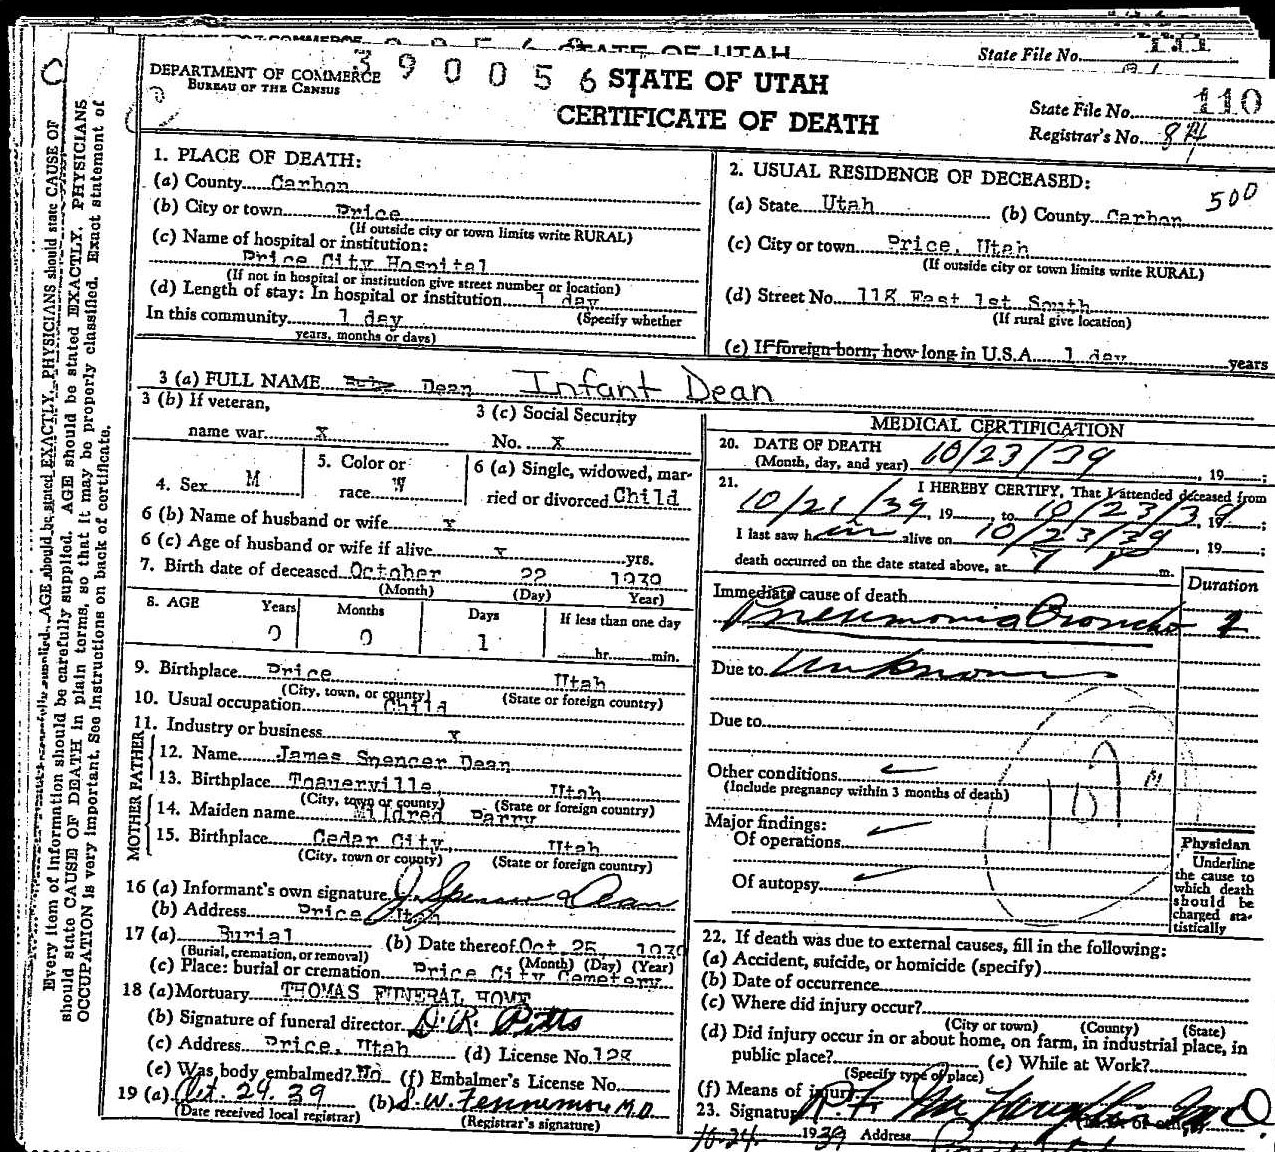 STATE OF UTAH
State File No.
390056
DEPARTMENT OF COMMERCE
BUREAU OF THE CENSUS
STATE OF UTAH
CERTIFICATE OF DEATH
State File No. 110
Registrar's No.
Every item of information should be carefully supplied. AGE should be stated EXACTLY. PHYSICIANS
should state CAUSE OF DEATH in plain terms, so that it may be properly classified. Exact statement of
OCCUPATION is very important. See instructions on back of certificate.
1. PLACE OF DEATH:
(a) County Carbon
(b) City or town Price
(If outside city or town limits write RURAL)
(c) Name of hospital or institution:
Price City Hospital
(If not in hospital or institution give street number or location)
(d) Length of stay: In hospital or institution 1 day
(Specify whether
In this community 1 day
years, months or days)
2. USUAL RESIDENCE OF DECEASED:
500
(a) State Utah (b) County Carbon
(c) City or town Price, Utah
(If outside city or town limits write RURAL)
(d) Street No. 118 East 1st South
(If rural give location)
(e) If foreign born, how long in U.S.A. 1 day years
3 (a) FULL NAME Dean Infant Dean
3 (b) If veteran,
name war x
3 (c) Social Security
No. x
4. Sex M
5. Color or
race W
6 (a) Single, widowed, mar-
ried or divorced Child
6 (b) Name of husband or wife x
6 (c) Age of husband or wife if alive x yrs.
7. Birth date of deceased October 22 1939
(Month) (Day) Year)
8. AGE Years Months Days If less than one day
0 0 1 hr. min.
9. Birthplace Price Utah
(City, town, or county) (State or foreign country)
10. Usual occupation Child
11. Industry or business x
FATHER
12. Name James Spencer Dean
13. Birthplace Toquerville, Utah
(City, town or county) (State or foreign country)
MOTHER
14. Maiden name Mildred Parry
15. Birthplace Cedar City, Utah
(City, town or county) (State or foreign country)
16 (a) Informant's own signature J. Spencer Dean
(b) Address Price, Utah
17 (a) Burial (b) Date thereof Oct. 25, 1939
(Burial, cremation, or removal) (Month) (Day) (Year)
(c) Place: burial or cremation Price City Cemetery
18 (a) Mortuary THOMAS FUNERAL HOME
(b) Signature of funeral director D. R. Pitts
(c) Address Price, Utah (d) License No. 128
(e) Was body embalmed? No (f) Embalmer's License No.
19 (a) Oct. 24. 39 (b) S. W. Fennemore M.D.
(Date received local registrar) (Registrar's signature)
MEDICAL CERTIFICATION
20. DATE OF DEATH
(Month, day, and year) 10/23/39, 19 ;
21. I HEREBY CERTIFY, That I attended deceased from
10/21/39, 19 , to 10/23/39, 19 ;
I last saw him alive on 10/23/39, 19 ;
death occurred on the date stated above, at 7 P m.
Immediate cause of death
Duration
Pneumonia Broncho
Due to Unknown
Due to
Other conditions
(Include pregnancy within 3 months of death)
Major findings:
Of operations
Of autopsy
Physician
Underline
the cause to
which death
should be
charged sta-
tistically
22. If death was due to external causes, fill in the following:
(a) Accident, suicide, or homicide (specify)
(b) Date of occurrence
(c) Where did injury occur?
(City or town) (County) (State)
(d) Did injury occur in or about home, on farm, in industrial place, in
public place? (e) While at Work?
(Specify type of place)
(f) Means of injury
23. Signature
10-24- 1939 Address